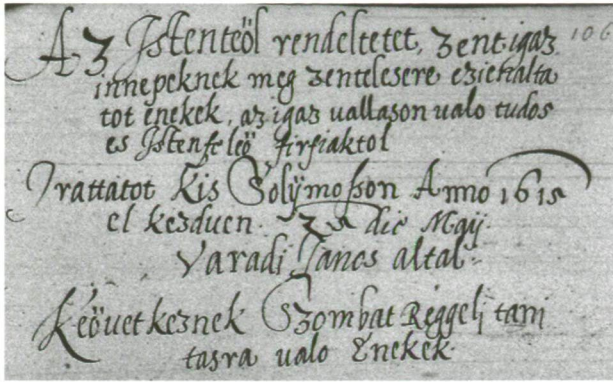 Az Istenteöl rendeltetet, zent igaz 106
innepeknek meg zentelesere ezienalta
tot enekek, az igaz uallason ualo tudos
es Istenfeleö firfiaktol
Irattatot Kis Solÿmosson Anno 1615
el kezduen 25 die Maÿ.
Varadi Janos altal
Keöuetkeznek Szombat Reggelj tani
tasra ualo Enekek